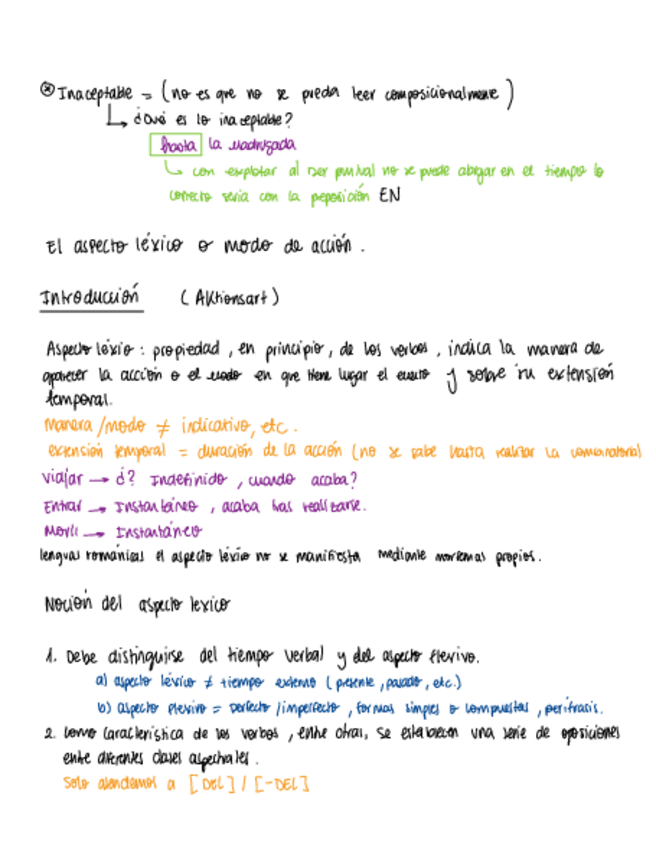 ⊛ Inaceptable = (no es que no se pueda leer composicionalmente)
↳ ¿Qué es lo inaceptable?
hasta la madrugada
↳ con explotar al ser puntual no se puede alargar en el tiempo lo
correcto sería con la preposición EN
El aspecto léxico o modo de acción.
Introducción (Aktionsart)
Aspecto léxico: propiedad, en principio, de los verbos, indica la manera de
aparecer la acción o el modo en que tiene lugar el evento y sobre su extensión
temporal.
Manera/modo ≠ indicativo, etc.
extensión temporal = duración de la acción (no se sabe hasta realizar la combinatoria)
Viajar → ¿? Indefinido, cuando acaba?
Entrar → Instantáneo, acaba tras realizarse.
Morir → Instantáneo
lenguas románicas el aspecto léxico no se manifiesta mediante morfemas propios.
Noción del aspecto lexico
1. Debe distinguirse del tiempo verbal y del aspecto flexivo.
a) aspecto léxico ≠ tiempo externo (presente, pasado, etc.)
b) Aspecto flexivo = perfecto/imperfecto, formas simples o compuestas, perífrasis.
2. Como característica de los verbos, entre otras, se establecen una serie de oposiciones
entre diferentes clases aspectuales.
Solo atendemos a [DEL] / [-DEL]